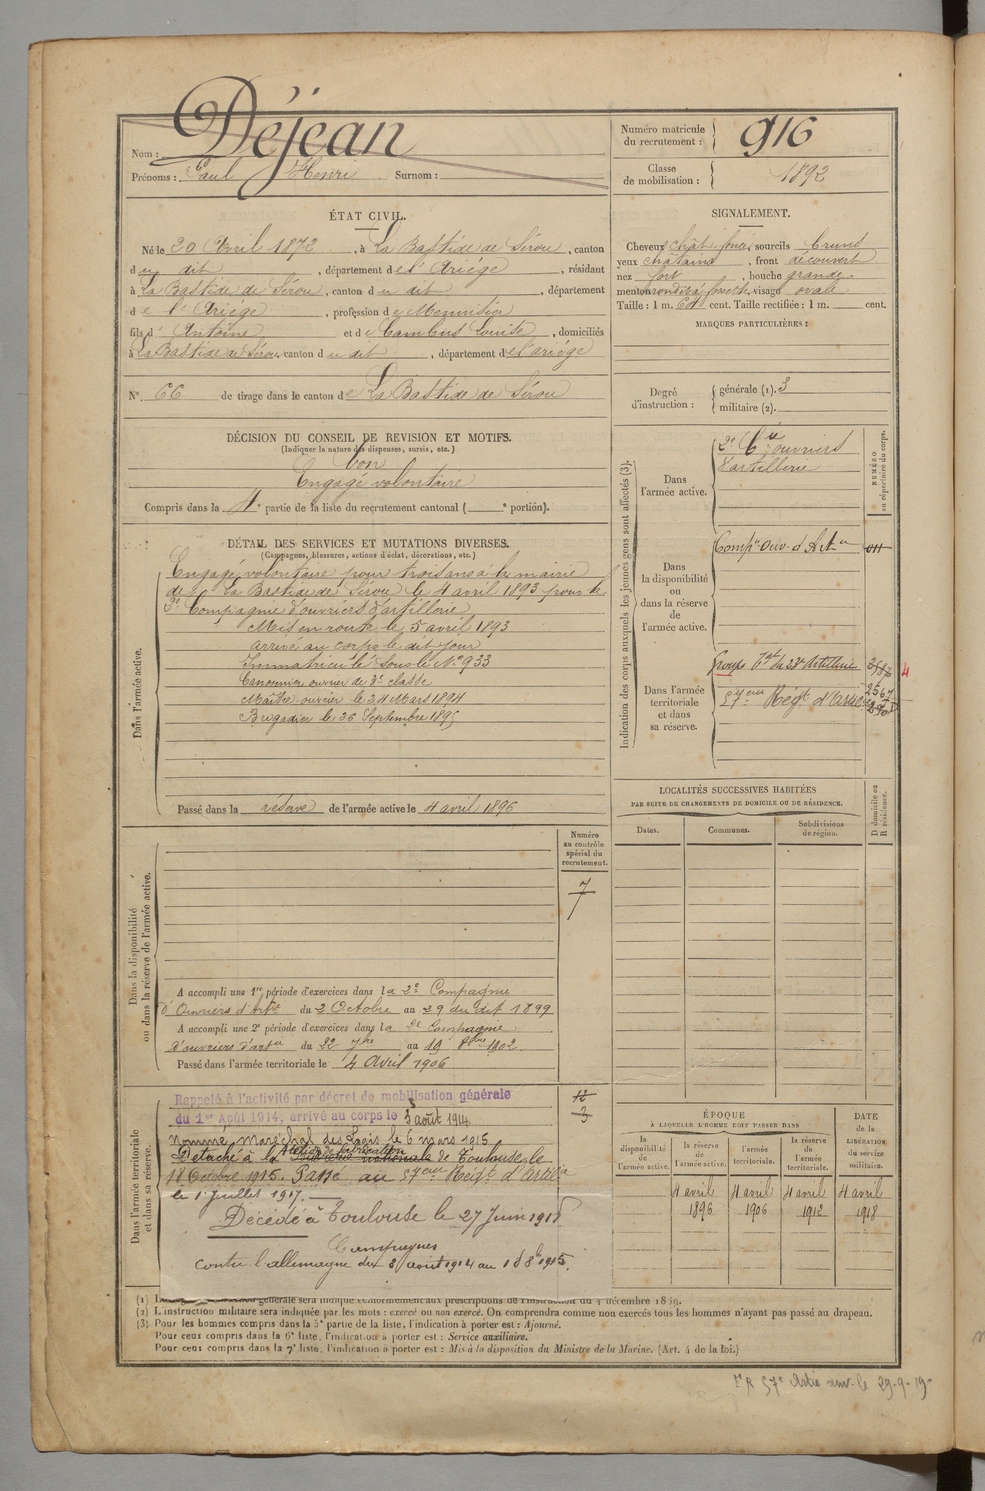 Nom : Déjean
Prénoms : Paul Henri Surnom :
Numéro matricule du recrutement : 916
Classe de mobilisation : 1892
ÉTAT CIVIL.
Né le 20 Avril 1872, à La Bastide de Sérou, canton
du dit, département de l'Ariège, résidant
à La Bastide de Sérou, canton du dit, département
de l'Ariège, profession de Menuisier
fils d'Antoine et de Cambus Louise, domiciliés
à La Bastide de Sérou, canton du dit, département de l'ariège
N° 66 de tirage dans le canton de La Bastide de Sérou
SIGNALEMENT.
Cheveux chât foncés sourcils bruns
yeux chatains, front découvert
nez fort, bouche grande
menton rond à fossette visage ovale
Taille : 1 m. 64 cent. Taille rectifiée : 1 m. cent.
MARQUES PARTICULIÈRES :
Degré d'instruction : générale (1). 3
militaire (2).
DÉCISION DU CONSEIL DE REVISION ET MOTIFS.
(Indiquer la nature des dispenses, sursis, etc.)
bon
Engagé volontaire
Compris dans la 4e partie de la liste du recrutement cantonal ( e portion).
DÉTAIL DES SERVICES ET MUTATIONS DIVERSES.
(Campagnes, blessures, actions d'éclat, décorations, etc.)
Dans l'armée active.
Engagé volontaire pour trois ans à la mairie
de La Bastide de Sérou le 4 avril 1893 pour la
2e Compagnie d'ouvriers d'artillerie
Mis en route le 5 avril 1893
arrivé au corps le dit jour
Immatriculé sous le N° 933
Canonnier ouvrier de 2e classe
Maître-ouvrier le 24 Mars 1894
Brigadier le 26 Septembre 1895
Passé dans la réserve de l'armée active le 4 avril 1896
Indication des corps auxquels les jeunes gens sont affectés (3).
NUMÉRO au répertoire du corps.
Dans l'armée active.
2e Cie ouvriers
d'artillerie
Dans la disponibilité ou dans la réserve de l'armée active.
Compie Ouv. d'Artie 011
Dans l'armée territoriale et dans sa réserve.
Groupe tal du 23e Artillerie
57eme Régt d'Artie
4
LOCALITÉS SUCCESSIVES HABITÉES
PAR SUITE DE CHANGEMENTS DE DOMICILE OU DE RÉSIDENCE.
Dates. Communes. Subdivisions de région.
D domicile ou R résidence.
Numéro au contrôle spécial du recrutement.
7
Dans la disponibilité ou dans la réserve de l'armée active.
A accompli une 1re période d'exercices dans la 2e Compagnie
d'Ouvriers d'Artie du 2 Octobre au 29 du dit 1899
A accompli une 2e période d'exercices dans la 2e Compagnie
d'ouvriers d'artie du 22 7bre au 19 8bre 1902.
Passé dans l'armée territoriale le 4 Avril 1906
Dans l'armée territoriale et dans sa réserve.
12
3
Rappelé à l'activité par décret de mobilisation générale
du 1er Août 1914, arrivé au corps le 3 août 1914
Nommé Maréchal des Logis le 6 mars 1915
Détaché à l'Atelier de fabrication de Toulouse le
18 Octobre 1915. Passé au 57eme Régt d'Artie
le 1er juillet 1917.
Décédé à Toulouse le 27 Juin 1918
Campagnes
Contre l'allemagne du 3 août 1914 au 18 8bre 1915.
ÉPOQUE
À LAQUELLE L'HOMME DOIT PASSER DANS
la disponibilité de l'armée active.
la réserve de l'armée active.
l'armée territoriale.
la réserve de l'armée territoriale.
DATE de la LIBÉRATION du service militaire.
4 avril 1896
4 avril 1906
4 avril 1912
4 avril 1918
(2) L'instruction militaire sera indiquée par les mots : exercé ou non exercé. On comprendra comme non exercés tous les hommes n'ayant pas passé au drapeau.
(3) Pour les hommes compris dans la 5e partie de la liste, l'indication à porter est : Ajourné.
Pour ceux compris dans la 6e liste, l'indication à porter est : Service auxiliaire.
Pour ceux compris dans la 7e liste, l'indication à porter est : Mis à la disposition du Ministre de la Marine. (Art. 4 de la loi.)
57e Artie env. le 29-9-19